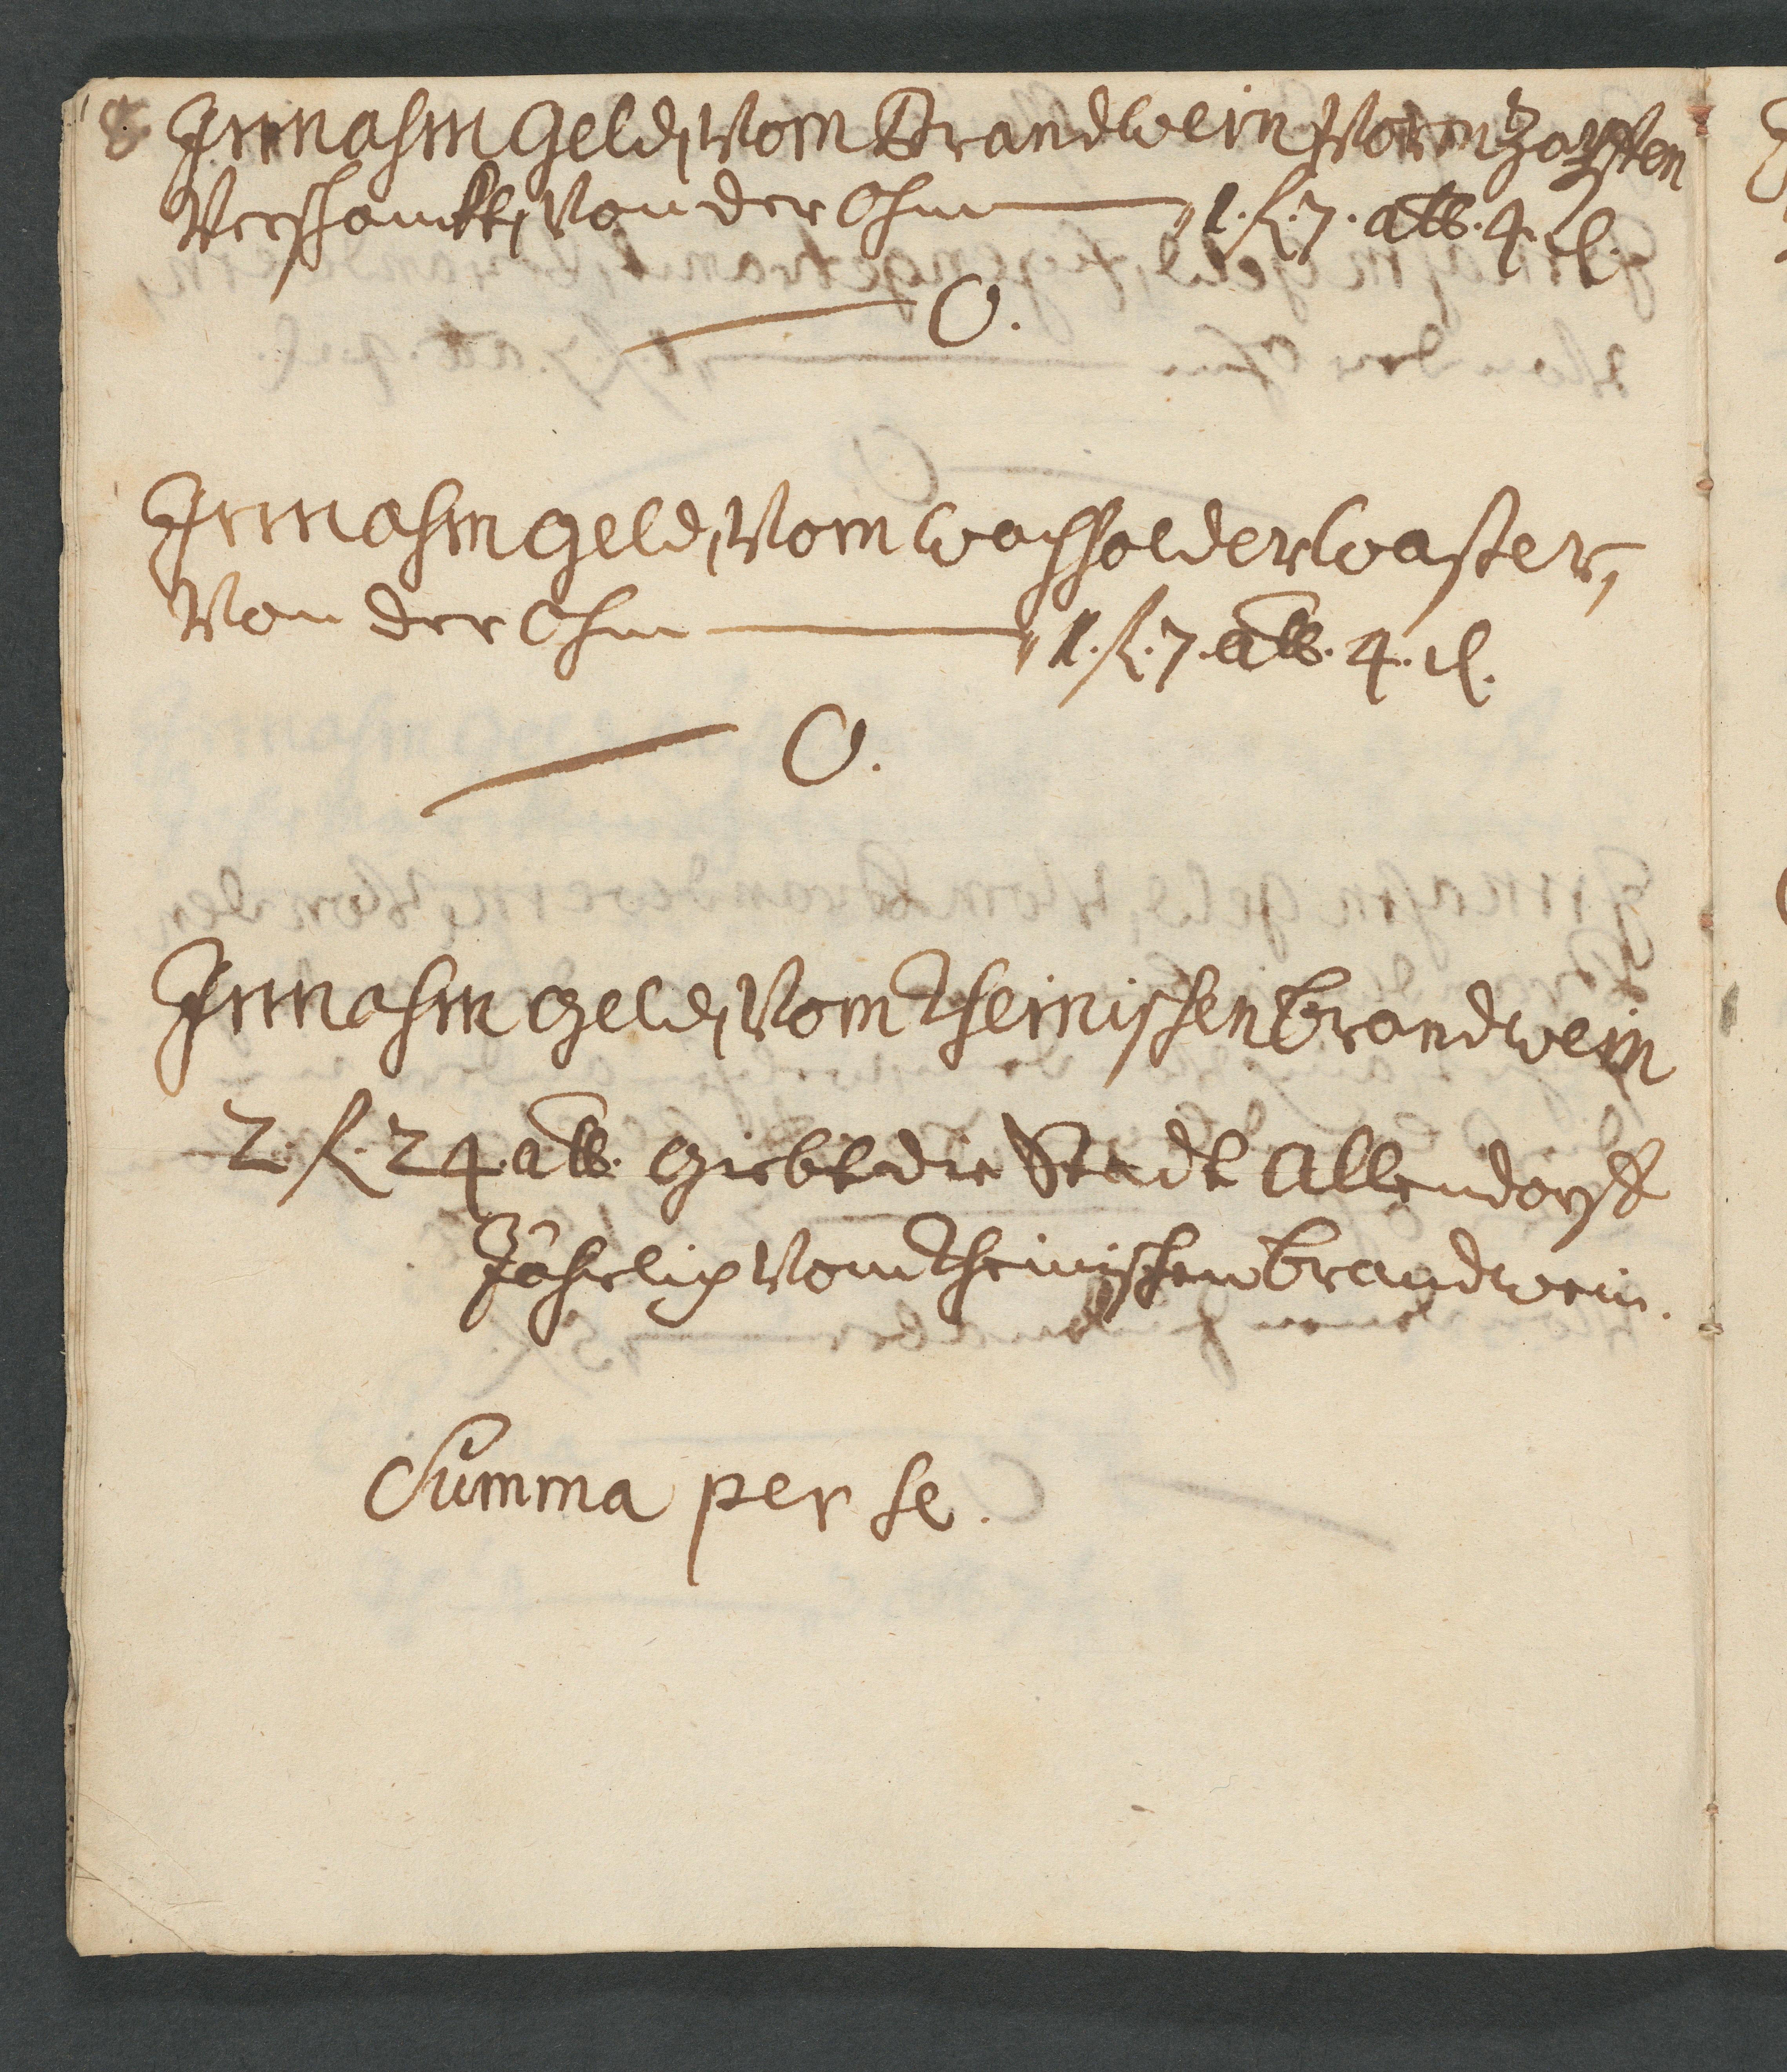 8 Innahm Geld, Vom Brandwein, Vorm Zapffen
Verschanckt, Von der Ohm — 1. fl. 7. alb. 4. d.
— O.
Innahm Geld, Vom Wachholderwaßer,
Von der Ohm — 1. fl. 7. alb. 4. d.
— O.
Innahm Geld, Vom Rheinischen brandwein
2. fl. 24. alb. Giebt die Stadt Allendorff
Jährlich Vom Rheinischen brandwein.
Summa per se.